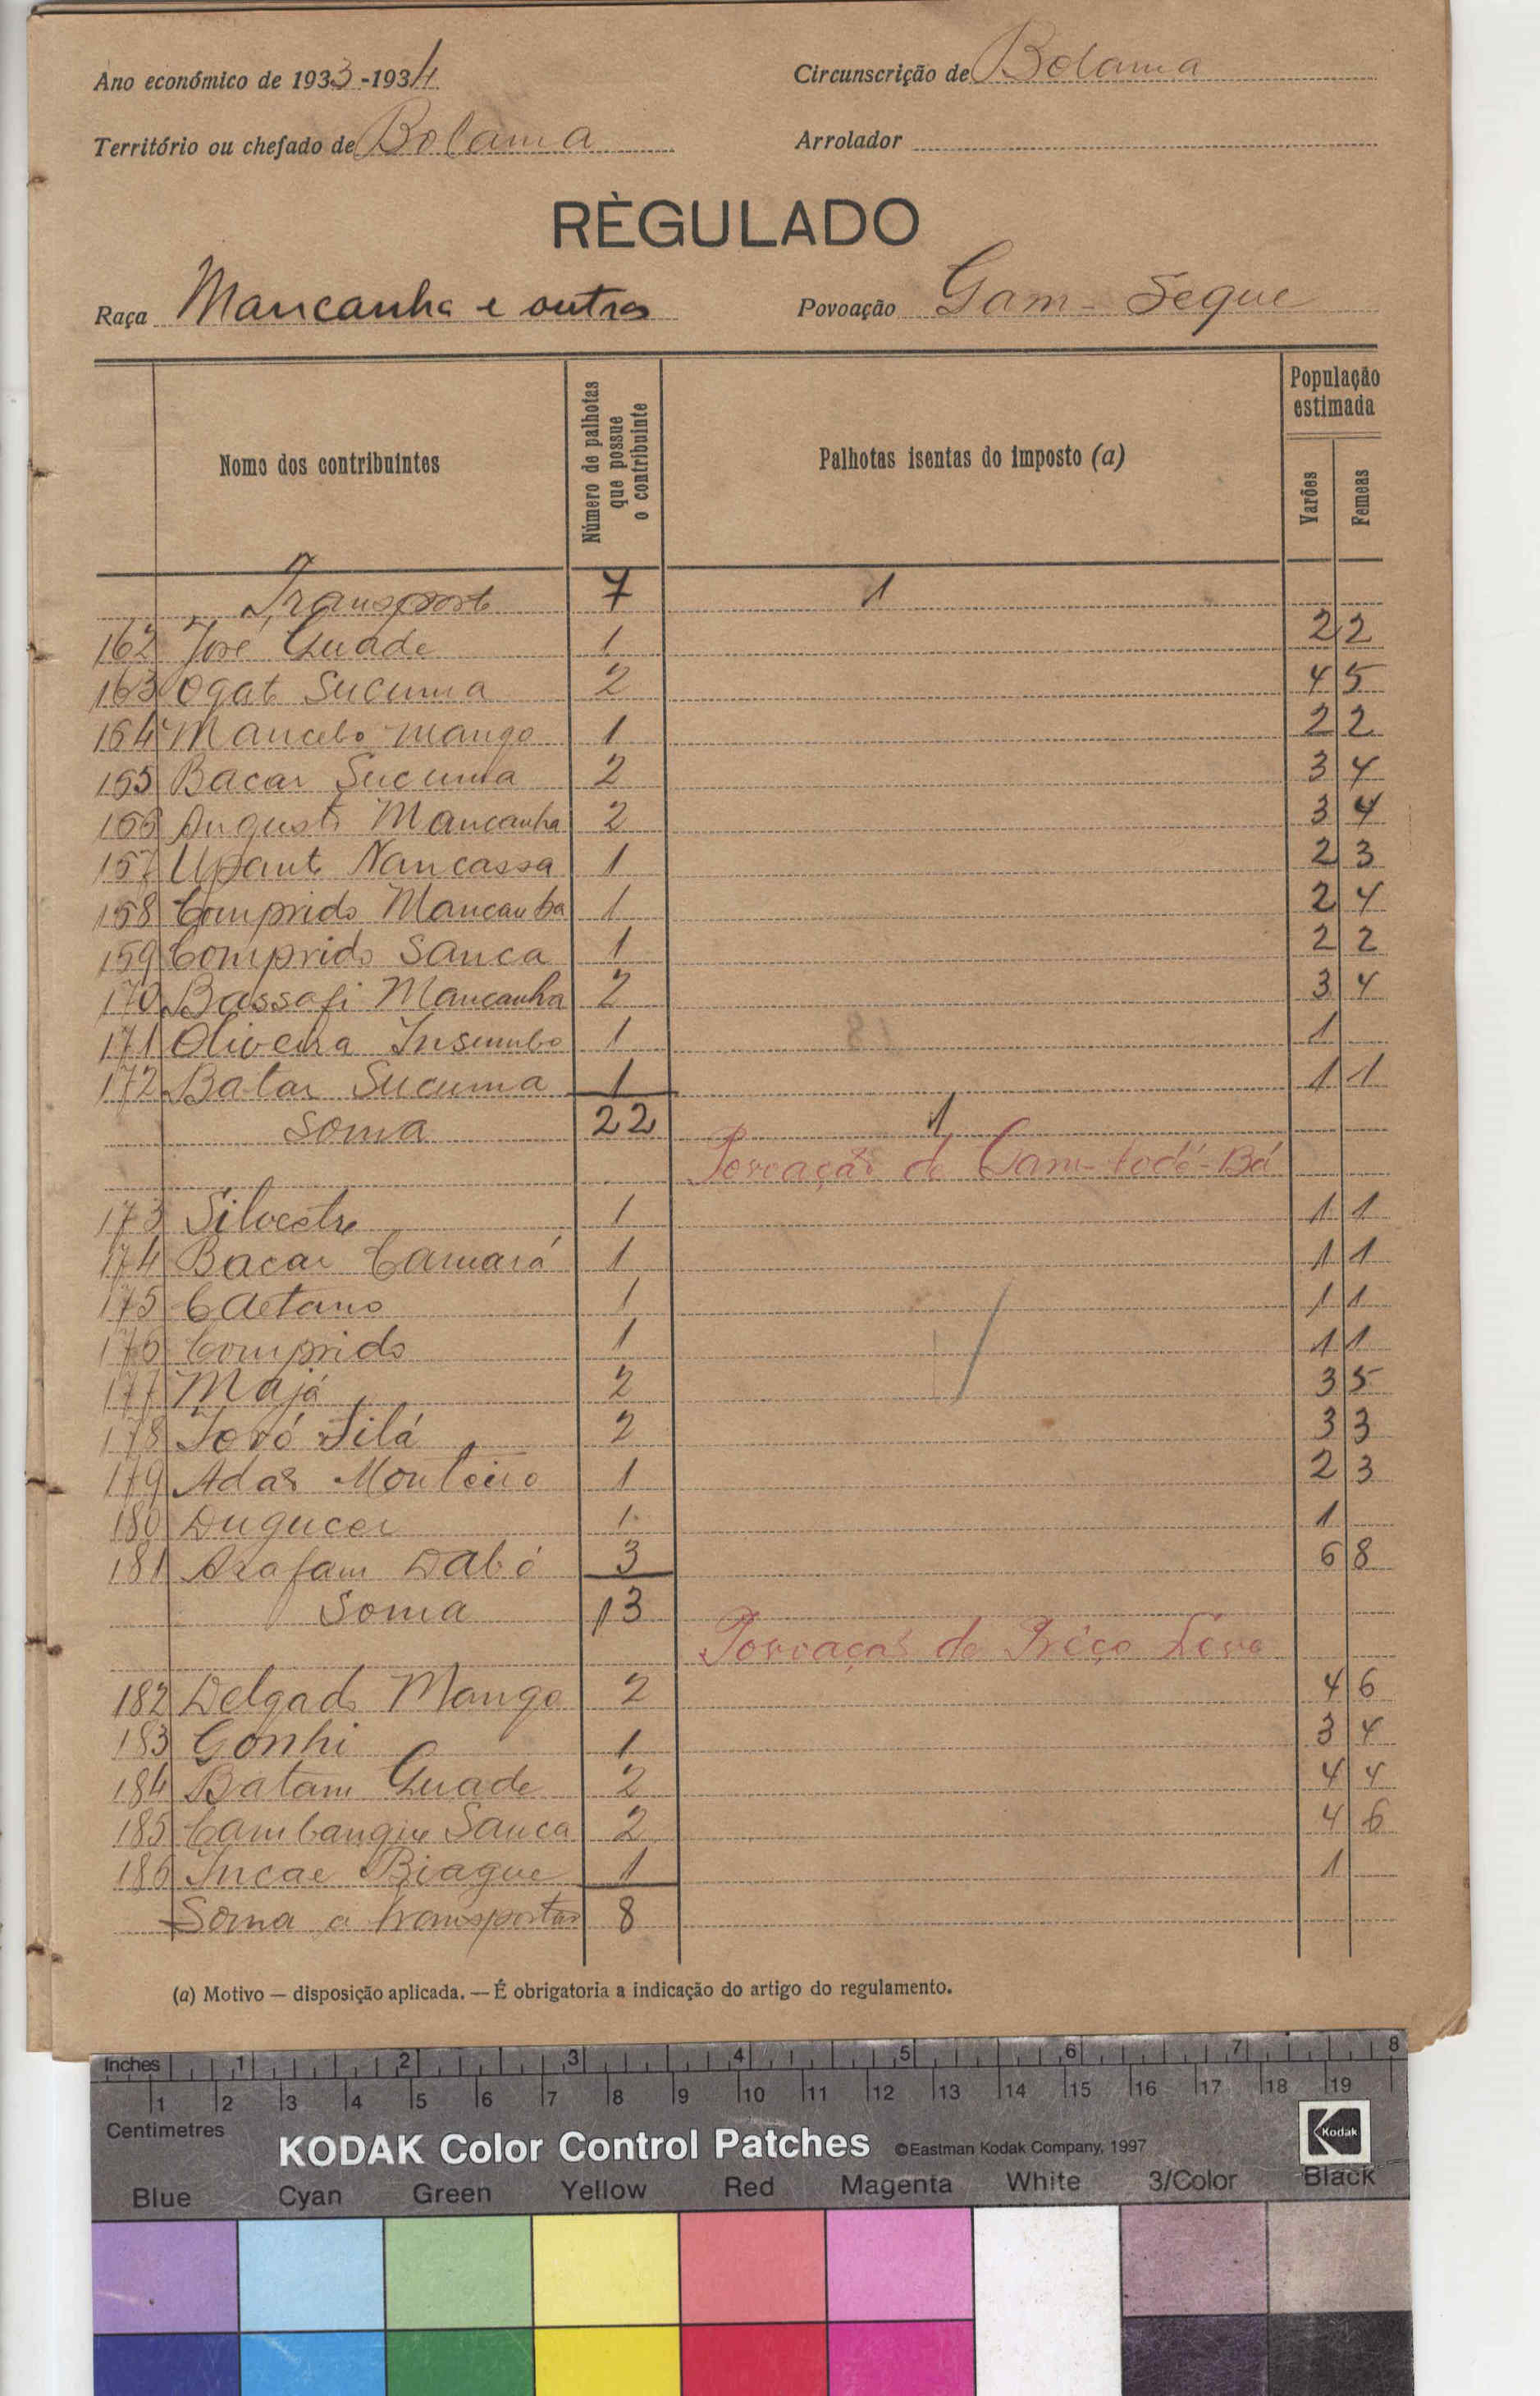 Ano económico de 1933-1934
Circunscrição de Bolama
Território ou chefado de Bolama
Arrolador
RÈGULADO
Raça Mancanha e outros
Povoação Gam-Seque
Nome dos contribuintes
Número de palhotas que possue o contribuinte
Palhotas isentas do imposto (a)
População estimada
Varões
Femeas
Transporte 7 1
162 José Guade 1 2 2
163 Ogat Sucuma 2 4 5
164 Mancebo Mango 1 2 2
165 Bacar Sucuma 2 3 4
166 Augusto Mancanha 2 3 4
167 Upante Nancassa 1 2 3
168 Comprido Mancanha 1 2 4
169 Comprido Sanca 1 2 2
170 Bassafi Mancanha 2 3 4
171 Oliveira Insumbo 1 1
172 Batar Sucuma 1 1 1
Soma 22 1
Povoação de Gam-todé-Bá
173 Silvestre 1 1 1
174 Bacar Camará 1 1 1
175 Caetano 1 1 1
176 Comprido 1 1 1
177 Majá 2 3 5
178 Silá 2 3 3
179 Adão Monteiro 1 2 3
180 1 1
181 Arafam Dabó 3 6 8
Soma 13
Povoação de Préço Leve
182 Delgado Mango 2 4 6
183 Gonhi 1 3 4
184 Batam Guade 2 4 4
185 Cambangue Sanca 2 4 6
186 Incae Biague 1 1
Soma a transportar 8
(a) Motivo — disposição aplicada. — É obrigatoria a indicação do artigo do regulamento.
Inches 1 2 3 4 5 6 7 8
1 2 3 4 5 6 7 8 9 10 11 12 13 14 15 16 17 18 19
Centimetres
KODAK Color Control Patches ©Eastman Kodak Company, 1997 Kodak
Blue Cyan Green Yellow Red Magenta White 3/Color Black